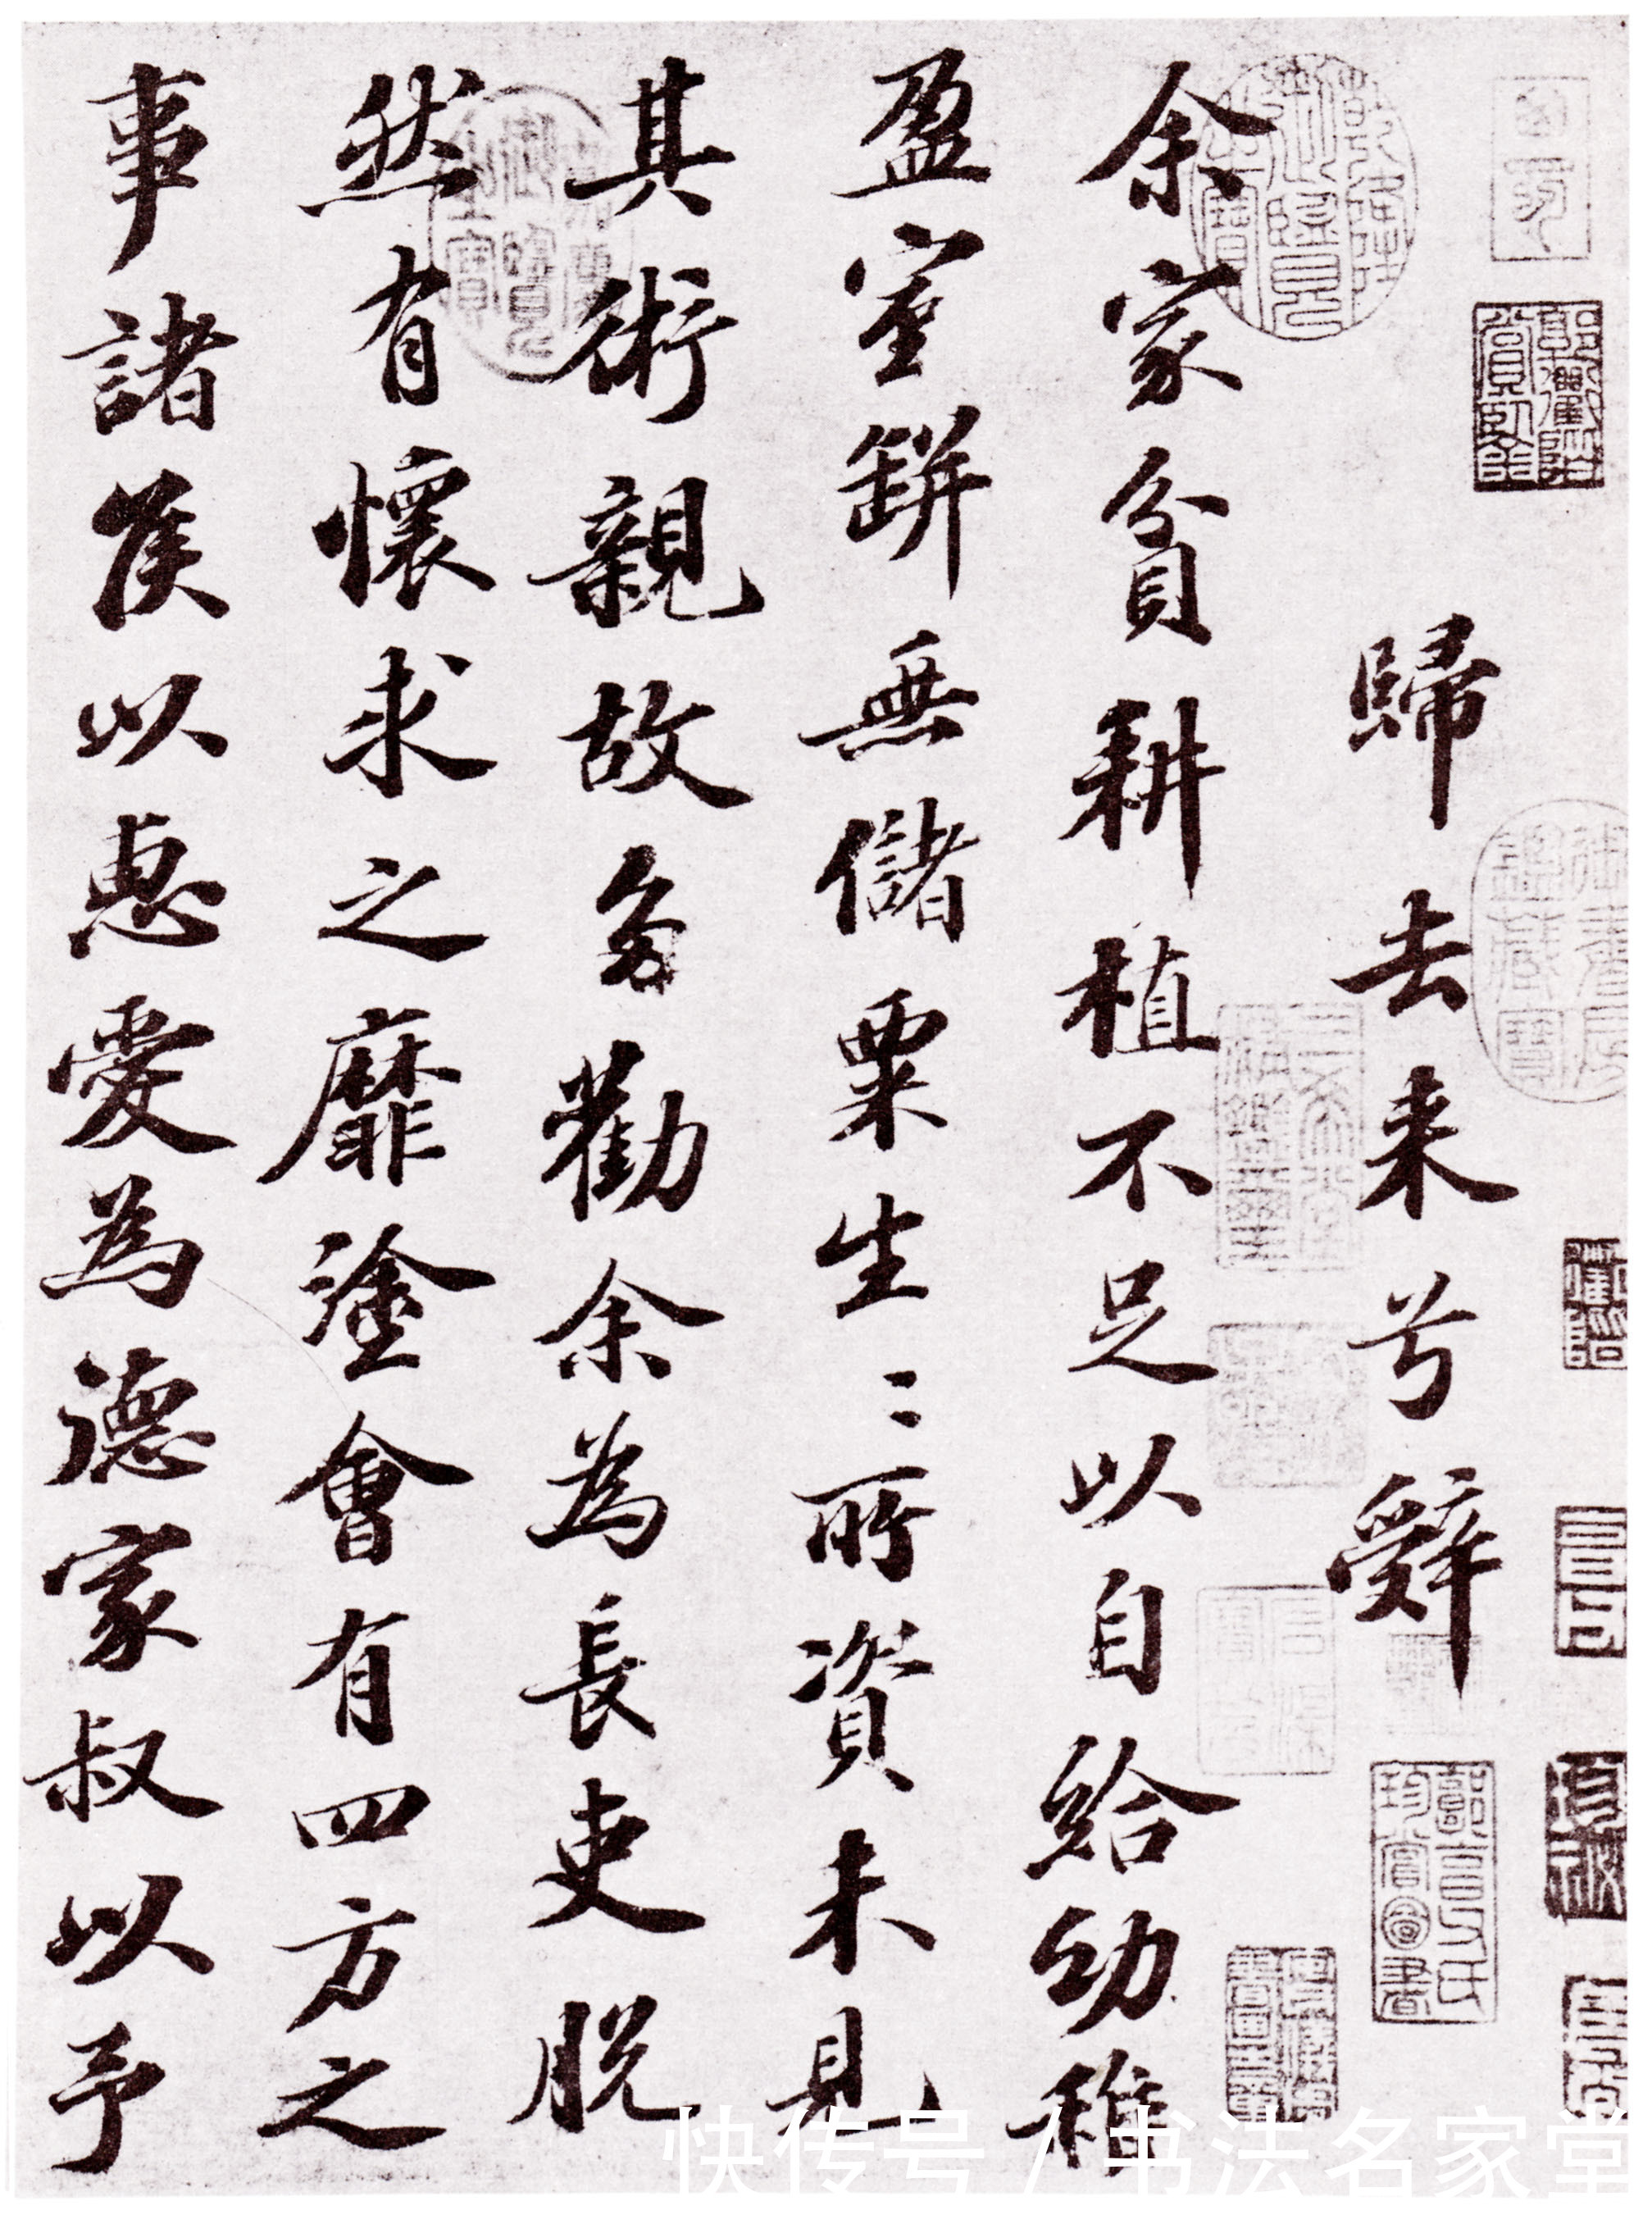 歸去来兮辞
余家貧耕植不足以自給幼稚
盈室缾無儲粟生〻所資未見
其術親故多勸余為長吏脱
然有懷求之靡塗會有四方之
事諸侯以惠愛為德家叔以予
快传号 / 书法名家堂